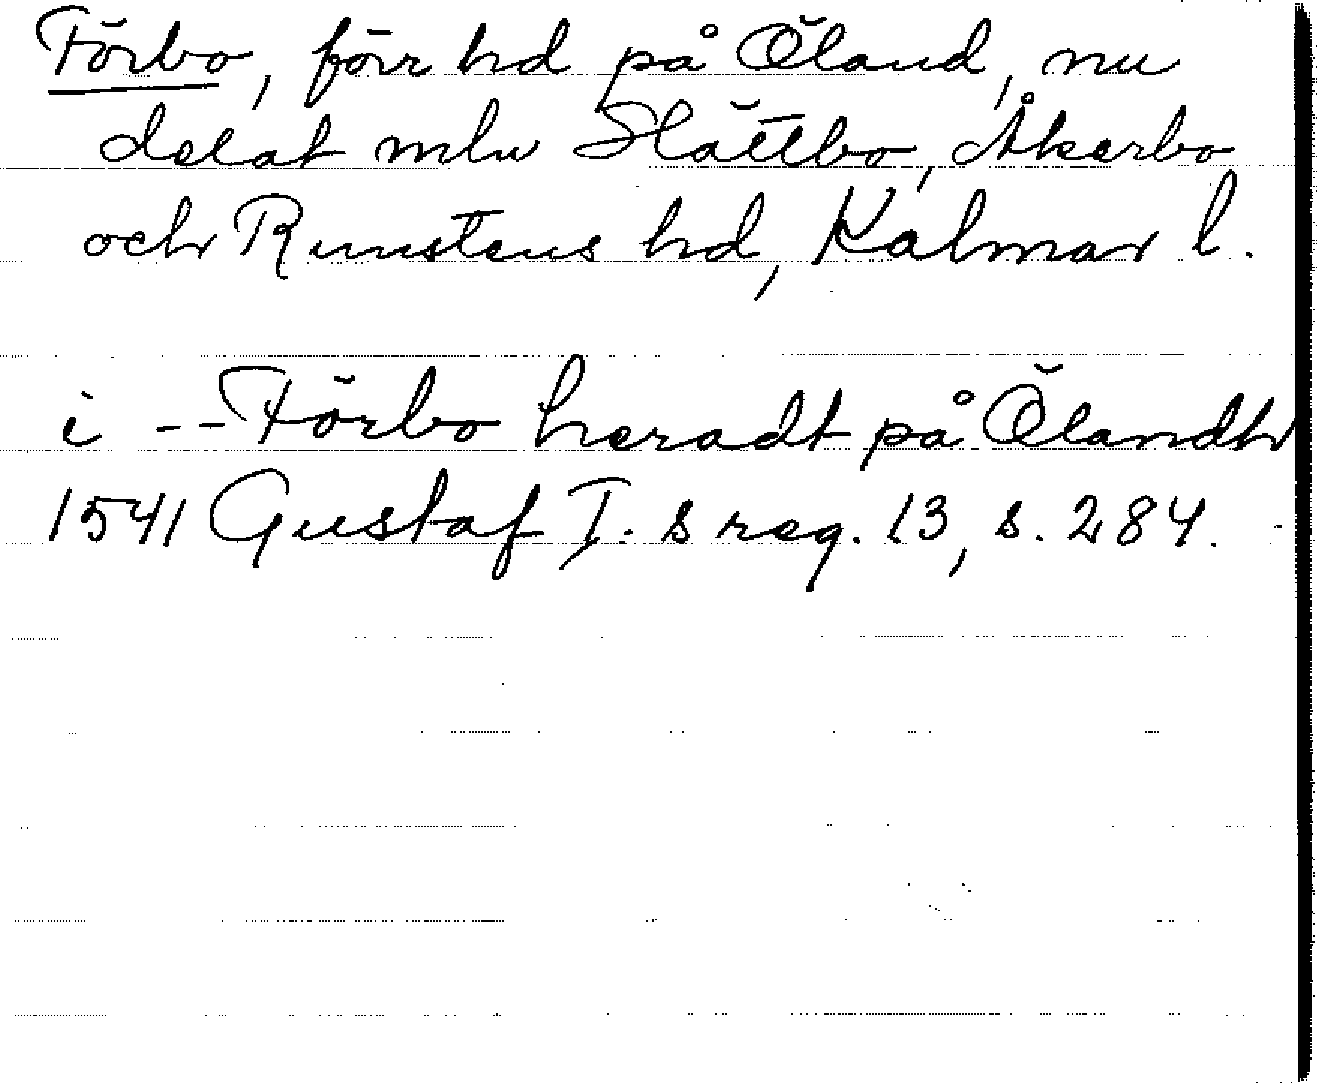 Förbo, förr hd på Öland, nu
delat mln Slättbo, Åkerbo
och Runstens hd, Kalmar l.
i -- Förbo heradt på Ölandh
1541 Gustaf I. s reg. 13, s. 284.